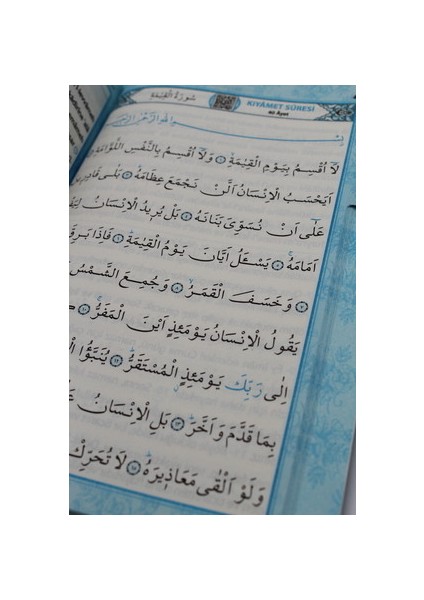 سُورَةُ الْقِيٰمَةِ
KIYÂMET SÛRESİ
40 Âyet
لَٓا اُقْسِمُ بِيَوْمِ الْقِيٰمَةِۙ ۝ وَلَٓا اُقْسِمُ بِالنَّفْسِ اللَّوَّامَةِ
اَيَحْسَبُ الْاِنْسَانُ اَلَّنْ نَجْمَعَ عِظَامَهُ ۝ بَلٰى قَادِر۪ينَ
عَلٰٓى اَنْ نُسَوِّيَ بَنَانَهُ ۝ بَلْ يُر۪يدُ الْاِنْسَانُ
اَمَامَهُۚ ۝ يَسْـَٔلُ اَيَّانَ يَوْمُ الْقِيٰمَةِۜ ۝ فَاِذَا بَرِقَ
۝ وَخَسَفَ الْقَمَرُۙ ۝ وَجُمِعَ الشَّمْسُ
يَقُولُ الْاِنْسَانُ يَوْمَئِذٍ اَيْنَ الْمَفَرُّۚ ۝
اِلٰى رَبِّكَ يَوْمَئِذٍۨ الْمُسْتَقَرُّۜ ۝ يُنَبَّؤُا
بِمَا قَدَّمَ وَاَخَّرَۜ ۝ بَلِ الْاِنْسَانُ
وَلَوْ اَلْقٰى مَعَاذ۪يرَهُۜ ۝ لَا تُحَرِّكْ